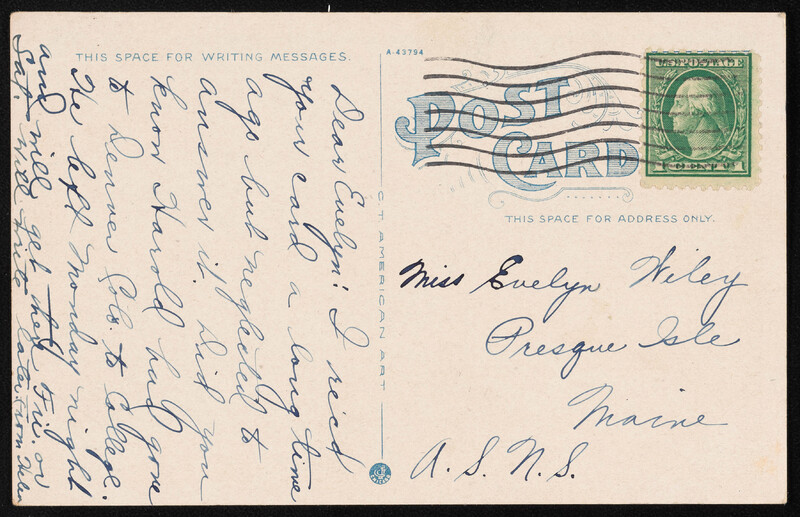 THIS SPACE FOR WRITING MESSAGES.
Dear Evelyn: I rec'd
your card a long time
ago but neglected to
answer it. Did you
know Harold had gone
to Denver Colo. to College.
He left Monday night
and will get there Fri. or
Sat. Will write later from Helen
A-43794
POST CARD
C.T. AMERICAN ART
THIS SPACE FOR ADDRESS ONLY.
Miss Evelyn Wiley
Presque Isle
Maine
A.S.N.S.
U.S. POSTAGE